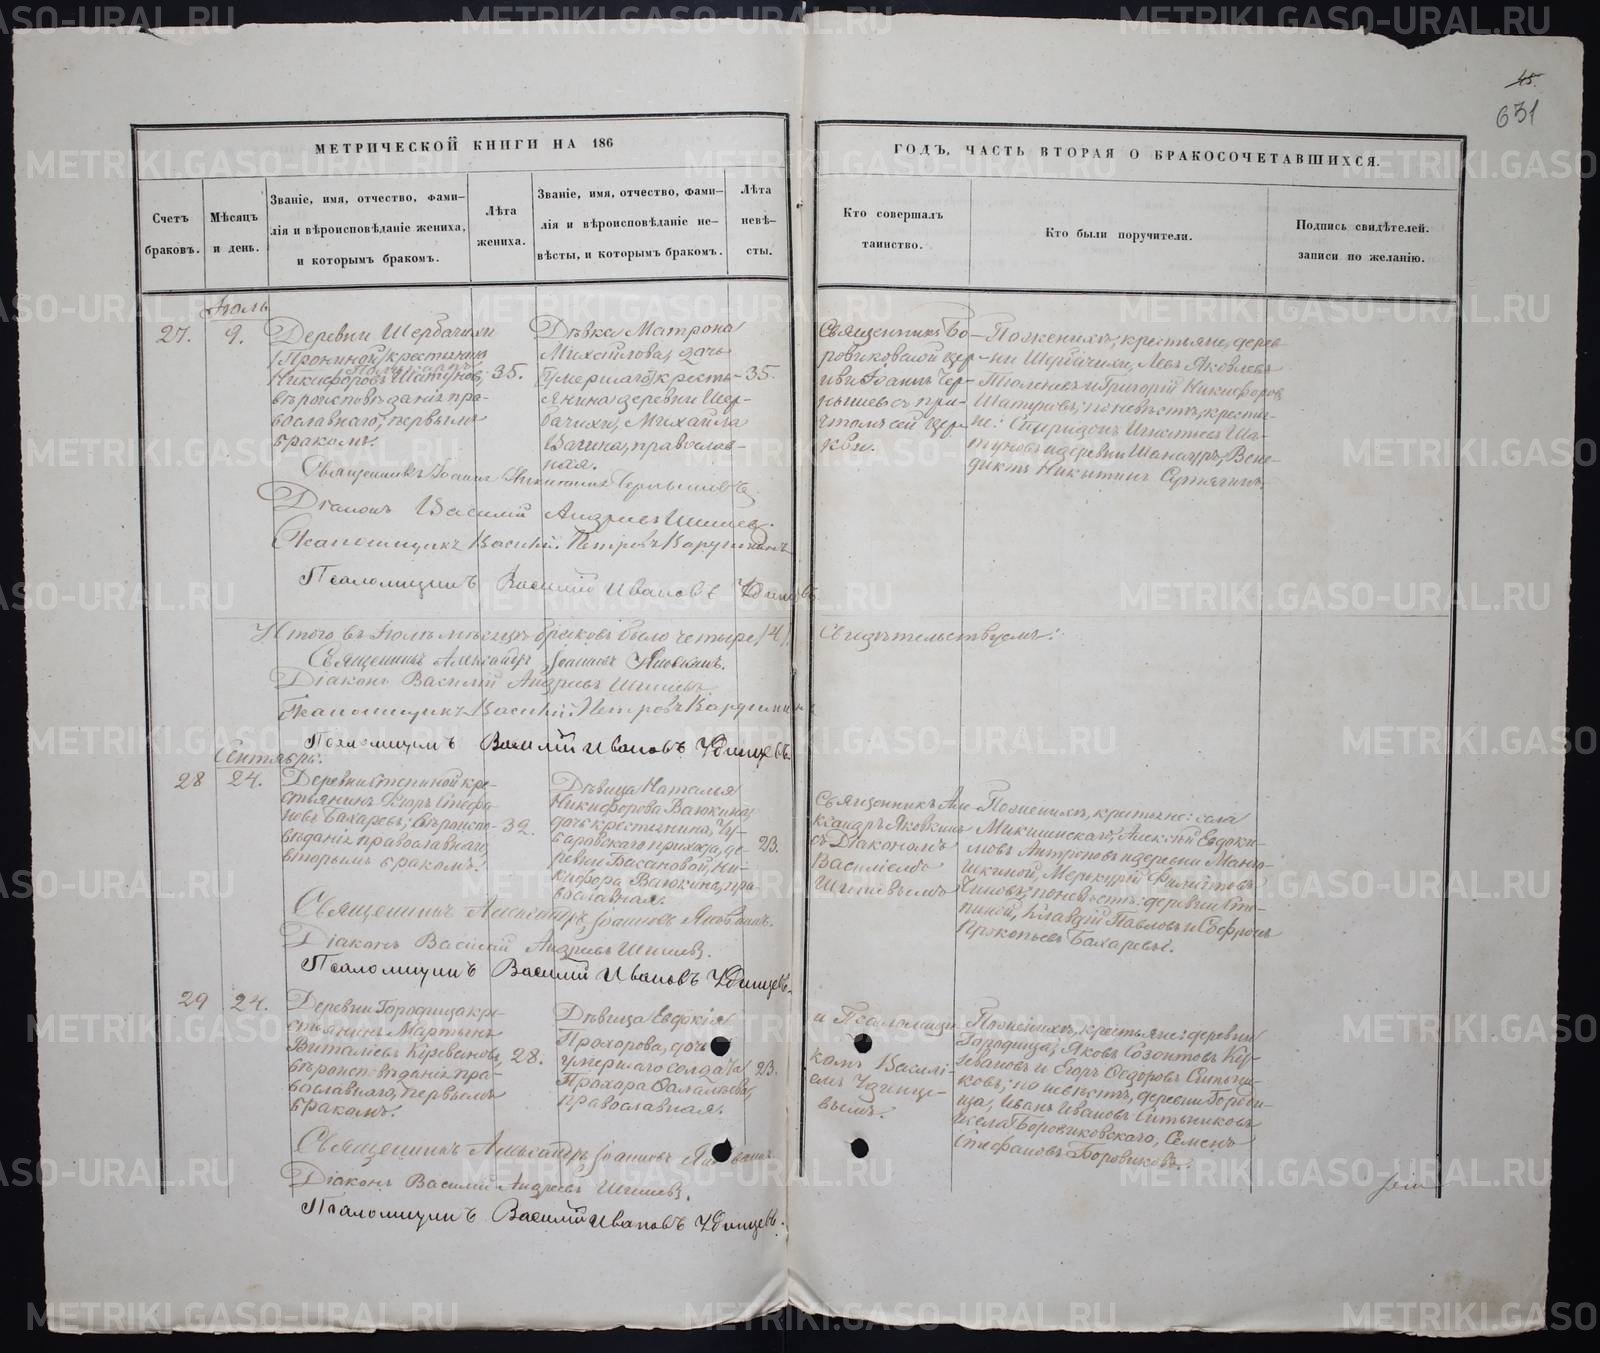 45.
631
МЕТРИЧЕСКОЙ КНИГИ НА 186
ГОДЪ, ЧАСТЬ ВТОРАЯ О БРАКОСОЧЕТАВШИХСЯ.
Счетъ
браковъ.
Мѣсяцъ
и день.
Званіе, имя, отчество, фами-
лія и вѣроисповѣданіе жениха,
и которымъ бракомъ.
Лѣта
жениха.
Званіе, имя, отчество, фами-
лія и вѣроисповѣданіе не-
вѣсты, и которымъ бракомъ.
Лѣта
невѣ-
сты.
Кто совершалъ
таинство.
Кто были поручители.
Подпись свидѣтелей.
записи по желанію.
Іюль
27.
9.
Деревни Щербачихи
(Прониной) крестьянинъ
Никифоровъ Шатуновъ,
вѣроисповѣданія пра-
вославнаго, первымъ
бракомъ.
35.
Дѣвка Матрона
Михайлова, дочь
умершаго кресть-
янина деревни Щер-
бачихи, Михаила
православ-
ная.
35.
Священникъ Бо-
ровиковской цер-
кви Іоаннъ Чер-
нышевъ съ при-
чтомъ сей цер-
кви.
По женихѣ, крестьяне, дерев-
ни Щербачихи, Левъ Яковлевъ
и Григорій Никифоровъ
Шатуновъ; по невѣстѣ, крестья-
не: Спиридонъ Игнатьевъ Ша-
туновъ и деревни Вене-
диктъ Никитинъ
Священникъ Іоаннъ Чернышевъ
Діаконъ Василій Андреевъ Шишевъ.
Василій Петровъ
Псаломщикъ Василій Ивановъ Удинцевъ
Итого въ Іюлѣ мѣсяцѣ браковъ было четыре (4)
Свидѣтельствуемъ:
Священникъ Александръ Іоанновъ Яковкинъ.
Діаконъ Василій Андреевъ Шишевъ.
Василій Петровъ
Псаломщикъ Василій Ивановъ Удинцевъ.
Сентябрь.
28
24.
Деревни Степиной кре-
стьянинъ Егоръ Стефа-
новъ Бахаревъ, вѣроиспо-
вѣданія православнаго,
вторымъ бракомъ.
32.
Дѣвица Наталья
Никифорова Ваюкина,
дочь крестьянина, Чу-
баровскаго прихода, де-
ревни Басановой, Ни-
кифора Ваюкина, пра-
вославная.
23.
Священникъ Але-
ксандръ Яковкинъ
съ Діакономъ
Василіемъ
Шишевымъ
По женихѣ, крестьяне: села
Микшинскаго, Алексѣй Евдоки-
мовъ Антроповъ и деревни
Меркурій
по невѣстѣ: деревни Сте-
пиной, Клавдій Павловъ и Софронъ
Прокопьевъ Бахаревы.
Священникъ Александръ Іоанновъ Яковкинъ.
Діаконъ Василій Андреевъ Шишевъ.
Псаломщикъ Василій Ивановъ Удинцевъ.
29
24.
Деревни Городища кре-
стьянинъ Мартынъ
Виталіевъ
вѣроисповѣданія пра-
вославнаго, первымъ
бракомъ.
28.
Дѣвица Евдокія
Прохорова, дочь
умершаго солдата
Прохора
православная.
23.
и Псаломщи-
комъ Василі-
емъ Удинце-
вымъ.
По женихѣ, крестьяне: деревни
Городища, Яковъ Созонтовъ
и Егоръ Ѳедоровъ Ситни-
ковъ; по невѣстѣ, деревни Городи-
ща, Иванъ Ивановъ Ситниковъ
и села Боровиковскаго, Семенъ
Стефановъ Боровиковъ.
Священникъ Александръ Іоанновъ Яковкинъ.
Діаконъ Василій Андреевъ Шишевъ.
Псаломщикъ Василій Ивановъ Удинцевъ.
METRIKI.GASO-URAL.RU